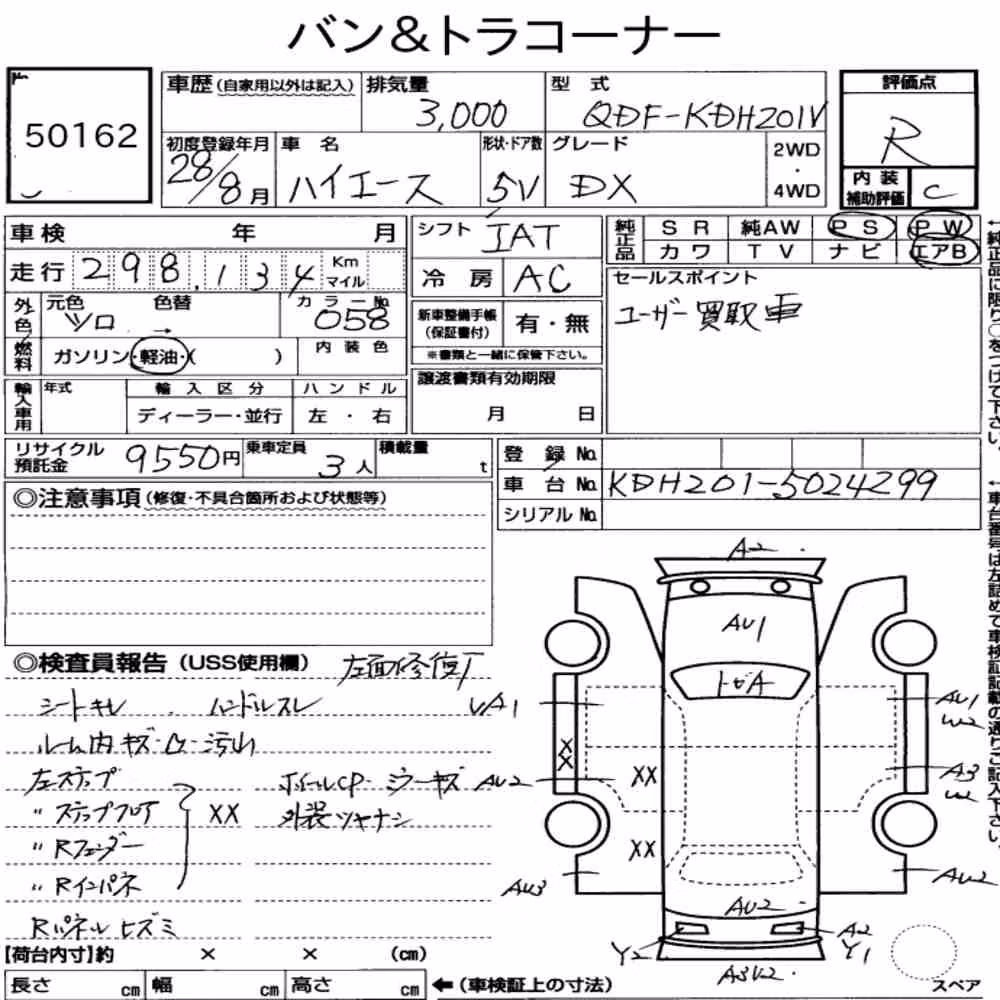 バン&トラコーナー
50162
車歴(自家用以外は記入) 排気量 3,000 型式 QDF-KDH201V
初度登録年月 28/8月 車名 ハイエース 形状・ドア数 5V グレード DX 2WD・4WD
評価点 R
内装補助評価 C
車検 年 月
走行 298,134 Km マイル
外色 元色 シロ 色替 → カラーNo. 058
燃料 ガソリン・軽油・( ) 内装色
輸入車用 年式 輸入区分 ディーラー・並行 ハンドル 左・右
シフト IAT
冷房 AC
新車整備手帳(保証書付) 有・無
※書類と一緒に保管下さい。
譲渡書類有効期限
月 日
純正品 SR 純AW PS PW
カワ TV ナビ エアB
セールスポイント
ユーザー買取車
←純正品に限り○をつけて下さい。
リサイクル預託金 9550円 乗車定員 3人 積載量 t
登録No.
車台No. KDH201-5024299
シリアルNo.
←車台番号は左詰めで車検証記載の通りご記入下さい。
◎注意事項(修復・不具合箇所および状態等)
◎検査員報告(USS使用欄) 左面修復歴
シートキレ ハンドルスレ
ルーム内キズ・ロ・汚れ
左ステップ ホイールCP・ジャッキズ
〃ステップフロア XX 外装ツヤナシ
〃Rフェンダー
〃Rインパネ
Rパネルヒズミ
A2
AU1
トビA
UA1
AU1
W2
XX
XX
AU2
A3
W2
XX
AU3
AU2
AU2
Y2
A2
Y1
A3U2
スペア
【荷台内寸】約 × × (cm)
長さ cm 幅 cm 高さ cm ←(車検証上の寸法)